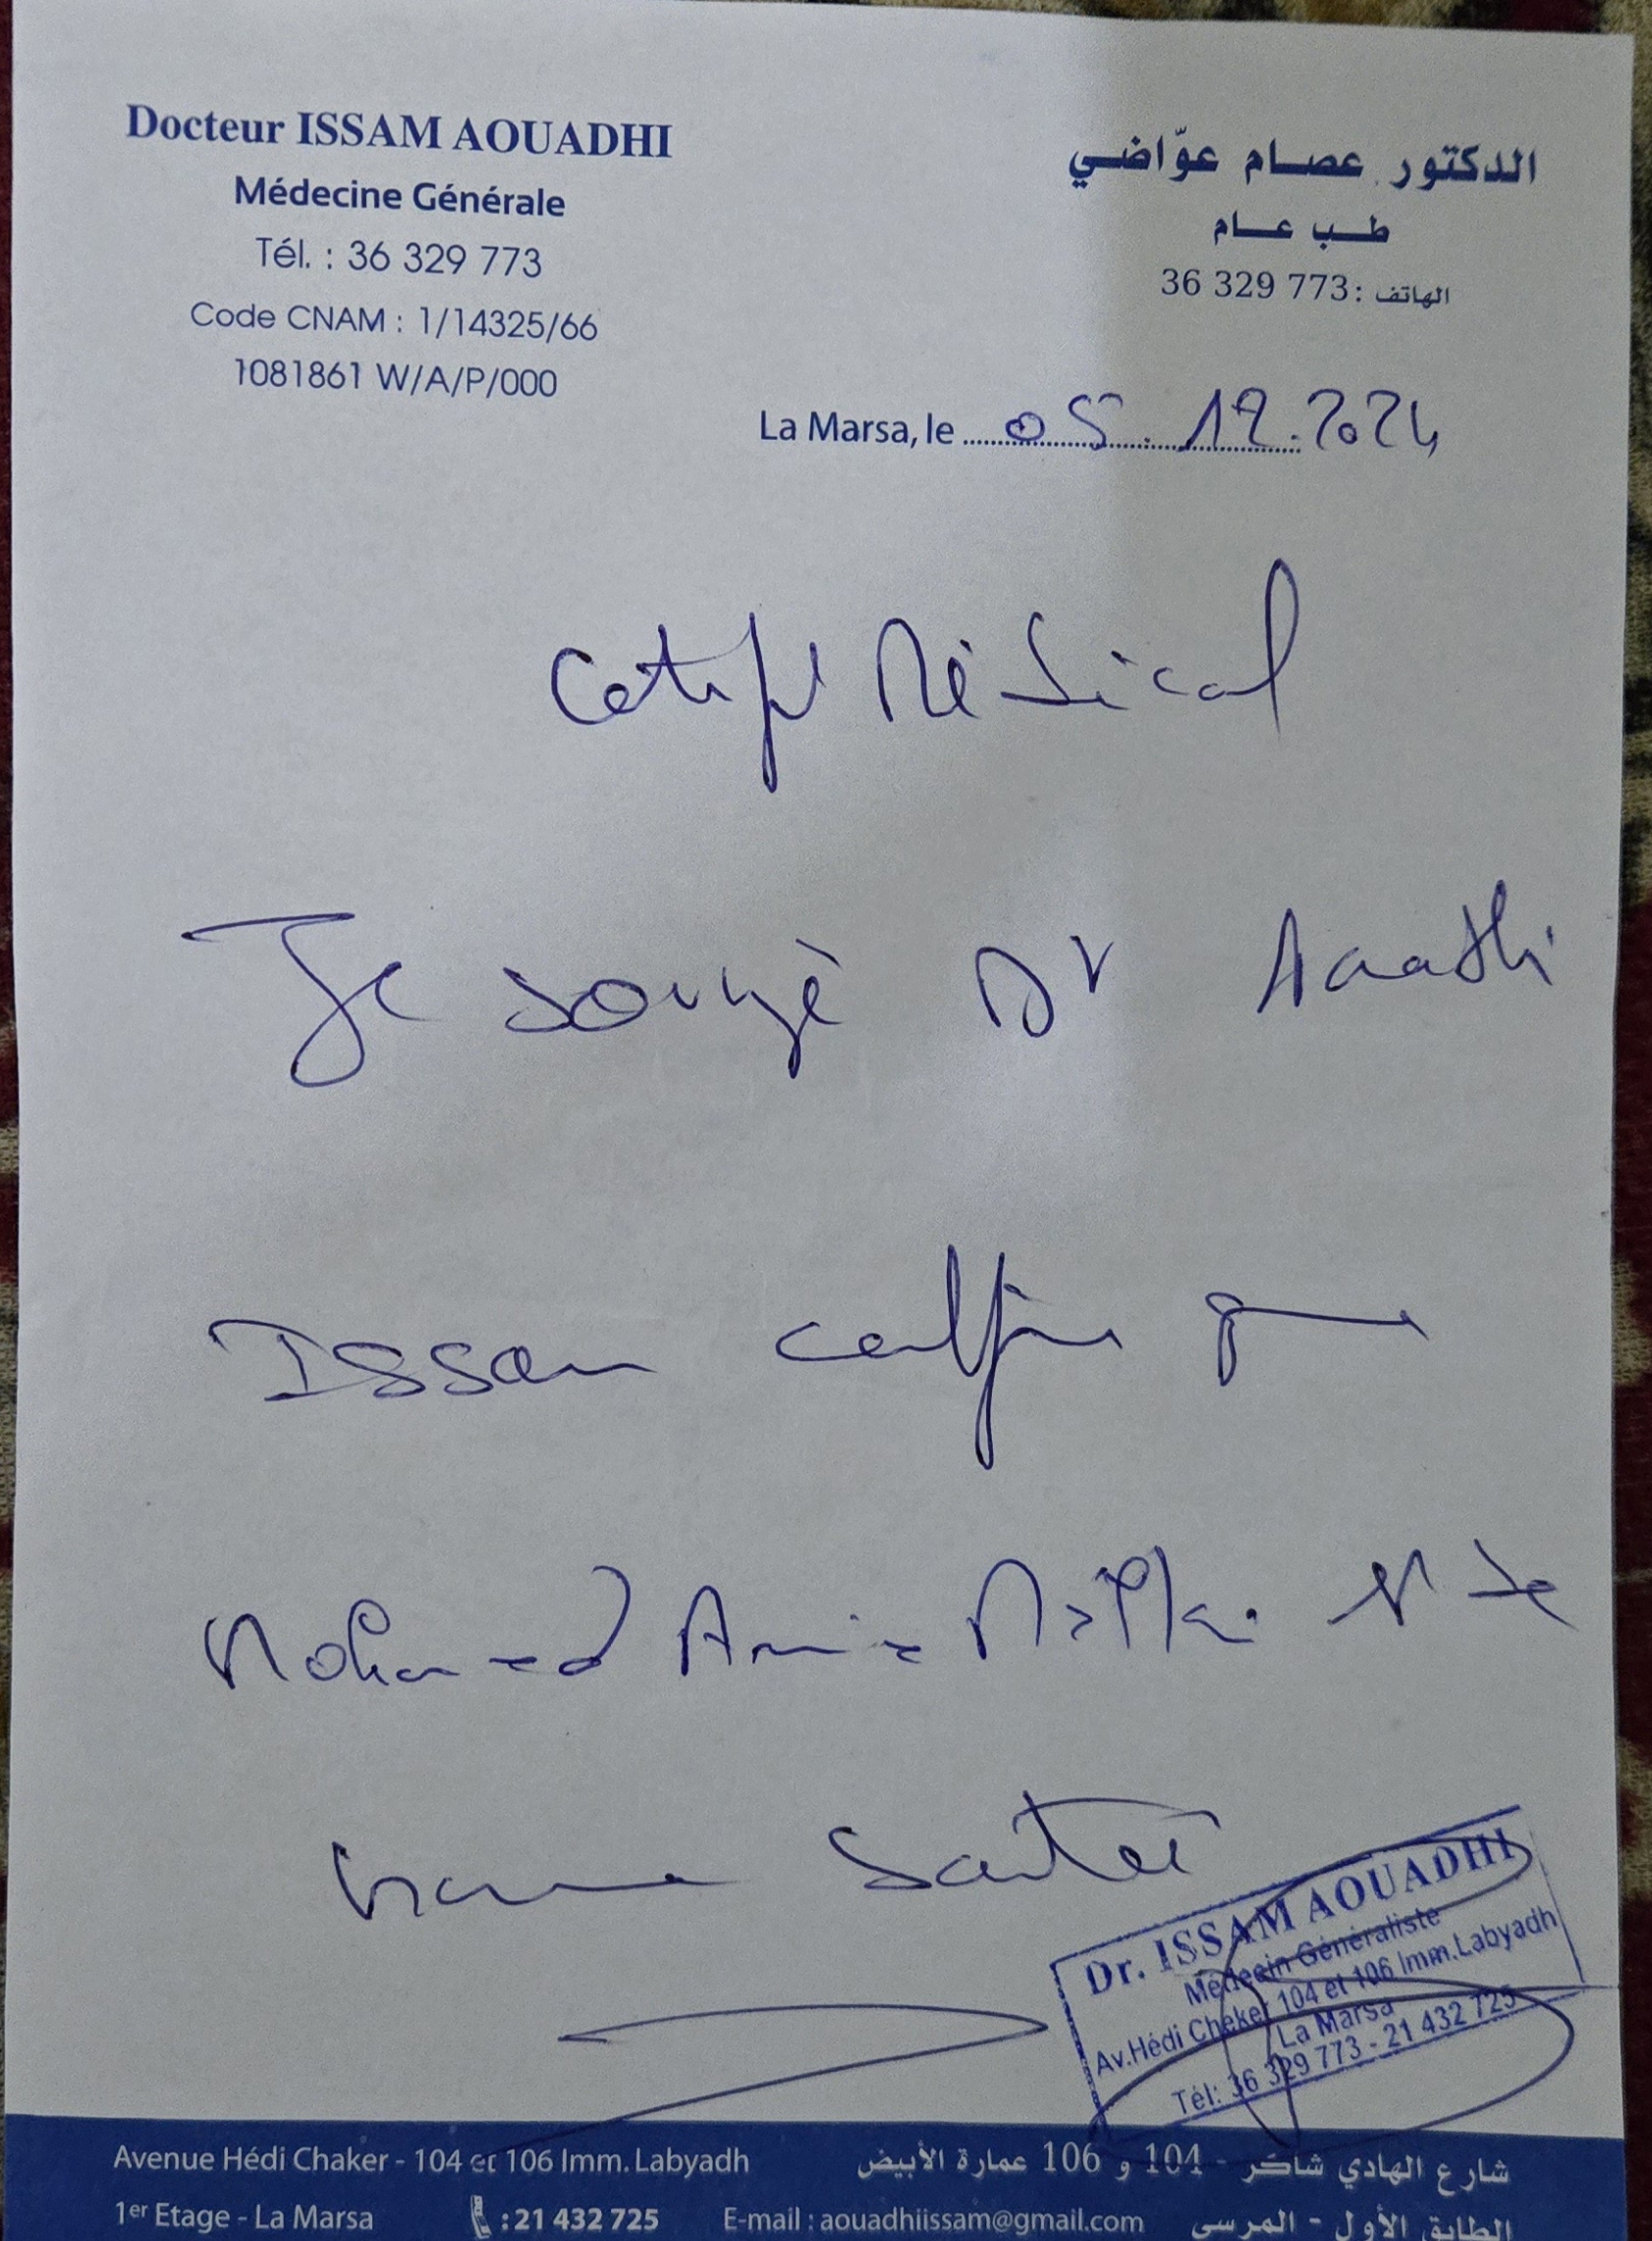 Docteur ISSAM AOUADHI
Médecine Générale
Tél. : 36 329 773
Code CNAM : 1/14325/66
1081861 W/A/P/000
الدكتور عصام عوّاضي
طب عام
الهاتف : 36 329 773
La Marsa, le 05.12.2024
Certif Médical
Je soussigné Dr Aouadhi
Issam certifie que
Mohamed Amine est de
bonne Santé
Dr. ISSAM AOUADHI
Médecin Généraliste
Av.Hédi Cheker 104 et 106 Imm.Labyadh
La Marsa
Tél: 36 329 773 - 21 432 725
Avenue Hédi Chaker - 104 et 106 Imm. Labyadh
1er Etage - La Marsa : 21 432 725 E-mail : aouadhiissam@gmail.com
شارع الهادي شاكر - 104 و 106 عمارة الأبيض
الطابق الأول - المرسى